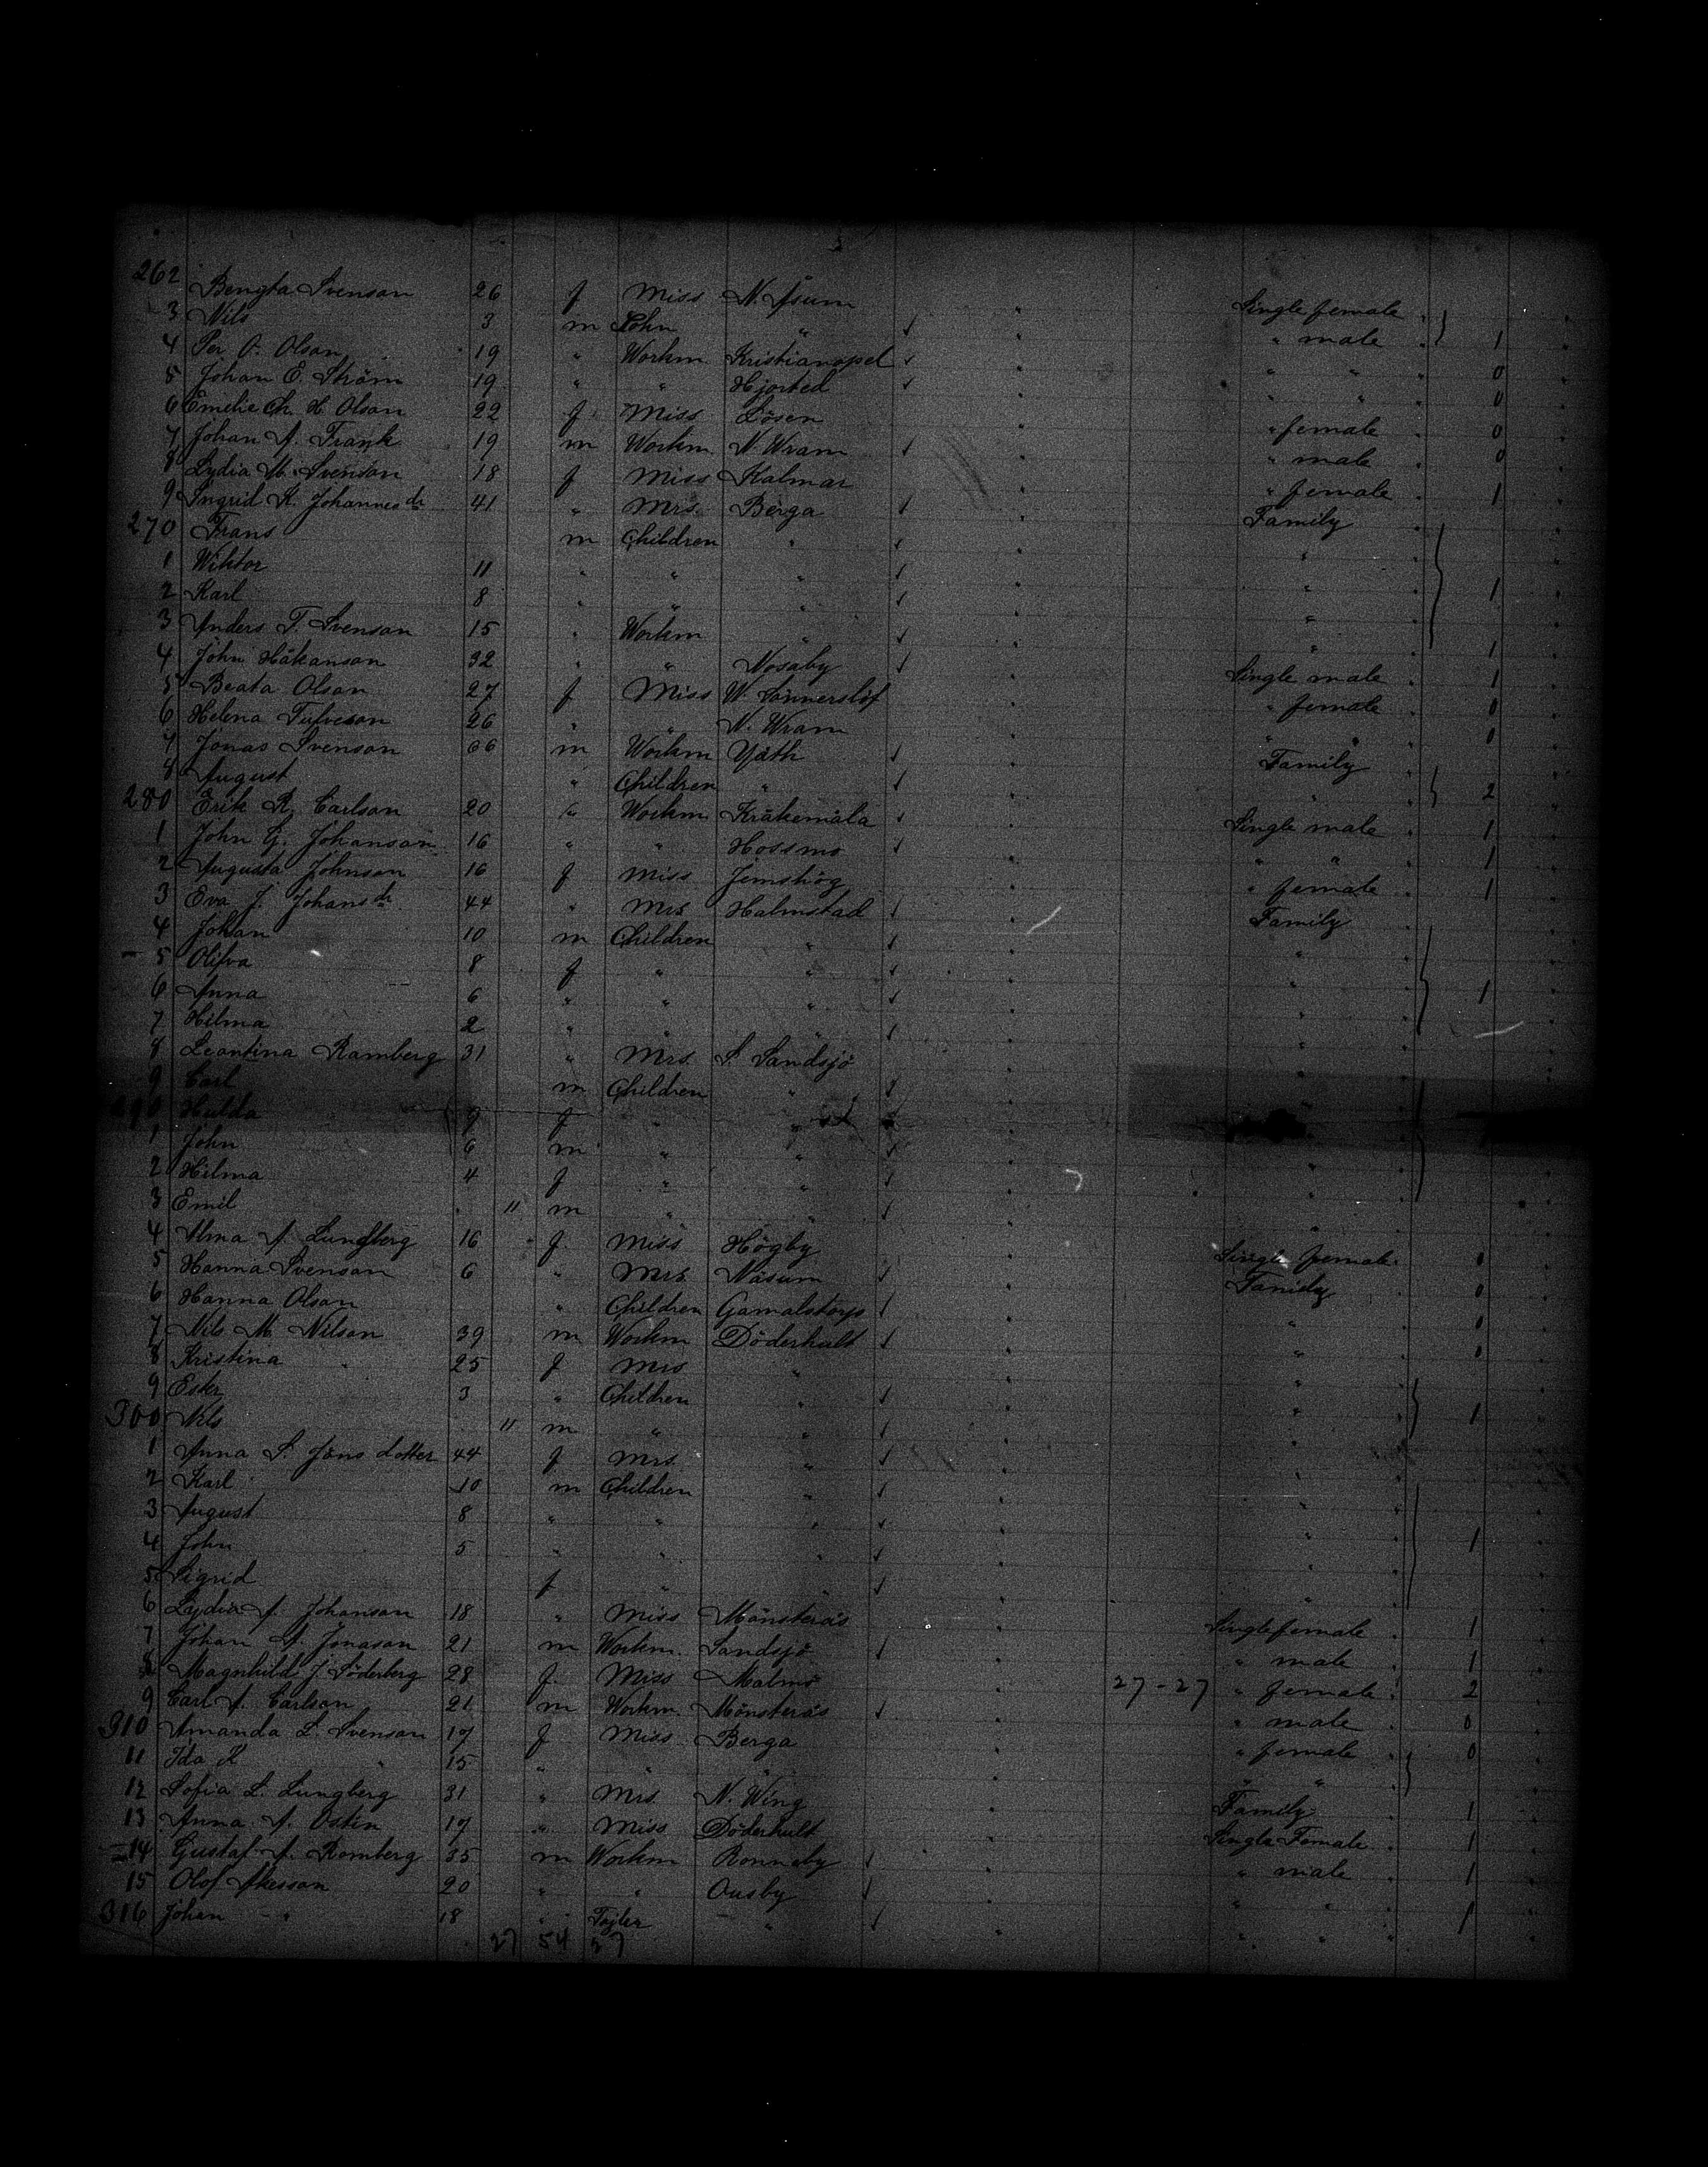 262 Bengta Svenson 26 f Miss N. Åsum Single female
3 Nils 3 m John " " male 1
4 Per O. Olson 19 " Workm Kristianopel " " 0
5 Johan E. Ström 19 " " Hjorted " " 0
6 Emelie Ch. H Olson 22 f Miss Lösen " female 0
7 Johan A. Frank 19 m Workm N Wram " male 0
8 Lydia M. Svenson 18 f Miss Kalmar " female 1
9 Ingrid K. Johannes dr 41 " Mrs. Berga Family
270 Frans m Children " "
1 Wiktor 11 " " " "
2 Karl 8 " " " " 1
3 Anders T. Svenson 15 " Workm " " 1
4 John Håkanson 32 " " Nosaby Single male 1
5 Beata Olson 27 f Miss W. Sönnerslöf " female 0
6 Helena Tufveson 26 " " N. Wram " " 0
7 Jonas Svenson 66 m Workm Family
8 August " Children " " 2
280 Erik R. Carlson 20 " Workm Kråkemåla Single male 1
1 John G. Johanson 16 " " Hossmo " " 1
2 Augusta Johnson 16 f Miss Jemshög " female 1
3 Eva J. Johans dr 44 " Mrs Halmstad Family
4 Johan 10 m Children " "
5 Oliva 8 f " " "
6 Anna 6 " " " " 1
7 Hilma 2 " " " "
8 Leontina Ramberg 31 " Mrs. S. Sandsjö "
9 Carl m Children " "
290 Hulda 9 f " "
1 John 6 m " " "
2 Hilma 4 f " " "
3 Emil 11 m " " "
4 Alma A. Lungberg 16 f. Miss Högby Single female 0
5 Hanna Svenson 6 " Mrs. Näsum Family 0
6 Hanna Olson " Children Gamalstorp " 0
7 Nils M. Nilson 39 m Workm Döderhult " 0
8 Kristina 25 f Mrs " "
9 Ester 3 " Children " " 1
300 Nils 11 m " " "
1 Anna S. Jöns dotter 44 f Mrs. " "
2 Karl 10 m Children " "
3 August 8 " " " "
4 John 5 " " " " 1
5 Sigrid f " " "
6 Lydia A. Johanson 18 " Miss Mönsterås Single female 1
7 Johan A. Jonason 21 m Workm. Sandsjö " male 1
8 Magnhild J. Söderberg 28 f. Miss Malmö 27-27 " female 2
9 Carl A. Carlson 21 m Workm. Mönsterås " male 0
310 Amanda L. Svenson 17 f Miss Berga " female 0
11 Ida K " 15 " " " " "
12 Sofia L. Lungberg 31 " Mrs. N. Wing Family 1
13 Anna A. Ostin 17 " Miss Döderhult Single Female 1
14 Gustaf A. Romberg 35 m Workm Ronneby " male 1
15 Olof Åkesson 20 " " Ousby " " 1
316 Johan " 18 " Tajler " " "
27 54 27